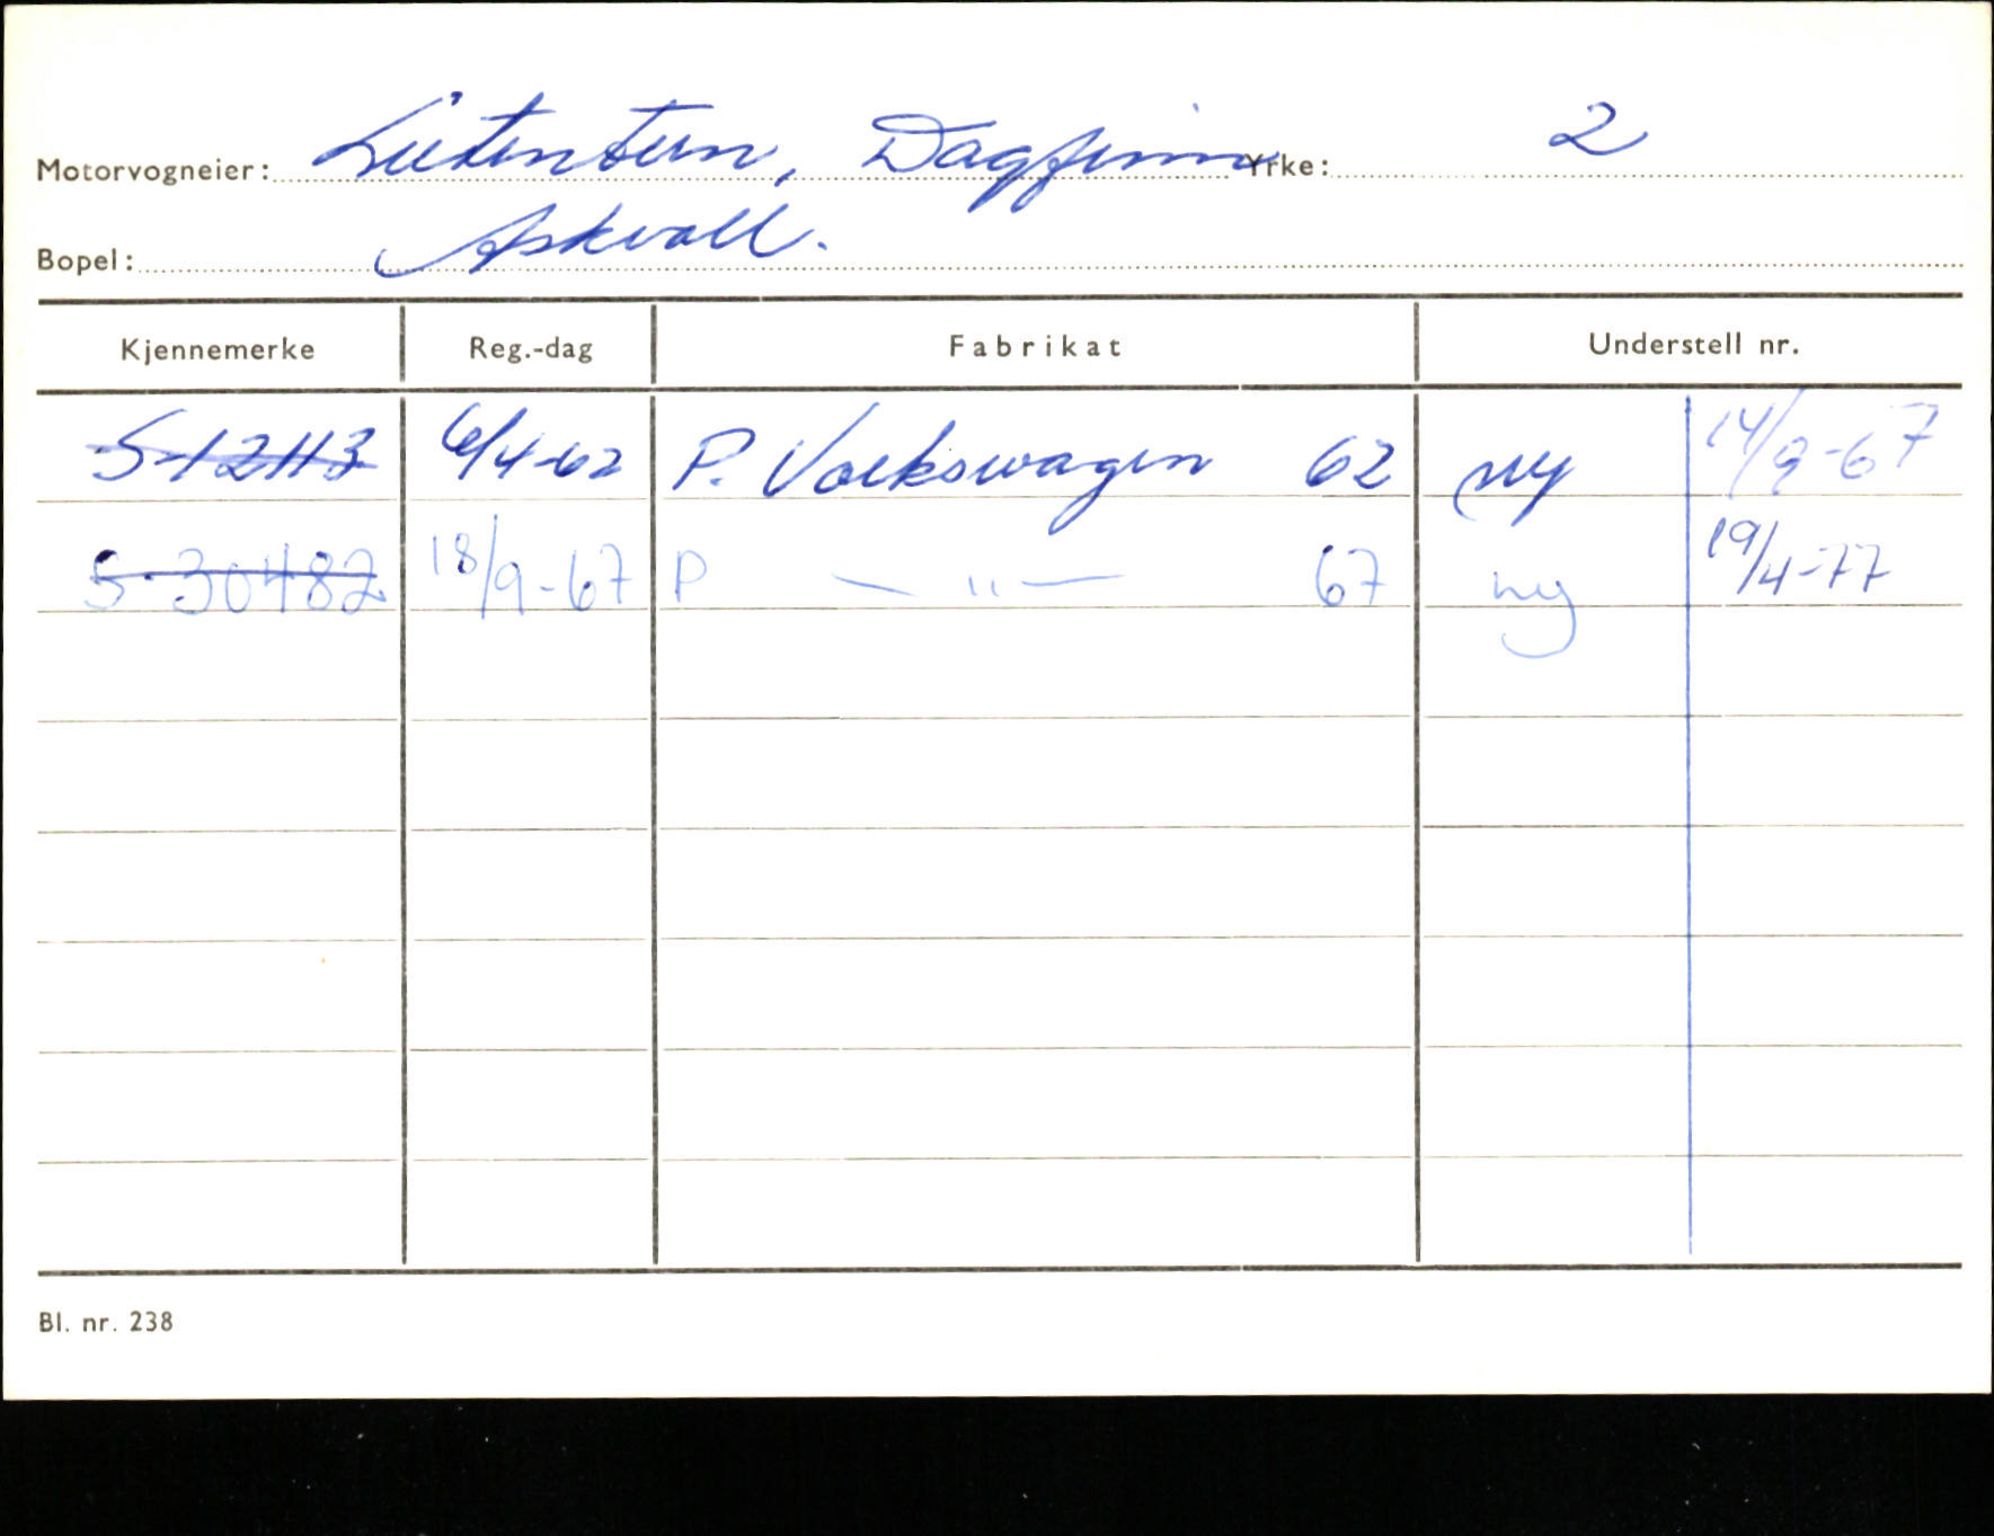 Motorvogneier: Dagfinn Yrke: 2
Bopel: Askvoll.
Kjennemerke Reg.-dag Fabrikat Understell nr.
S-12113 6/4-62 P. Volkswagen 62 ny 14/9-67
S-30482 18/9-67 P — " — 67 ny 19/4-77
Bl. nr. 238